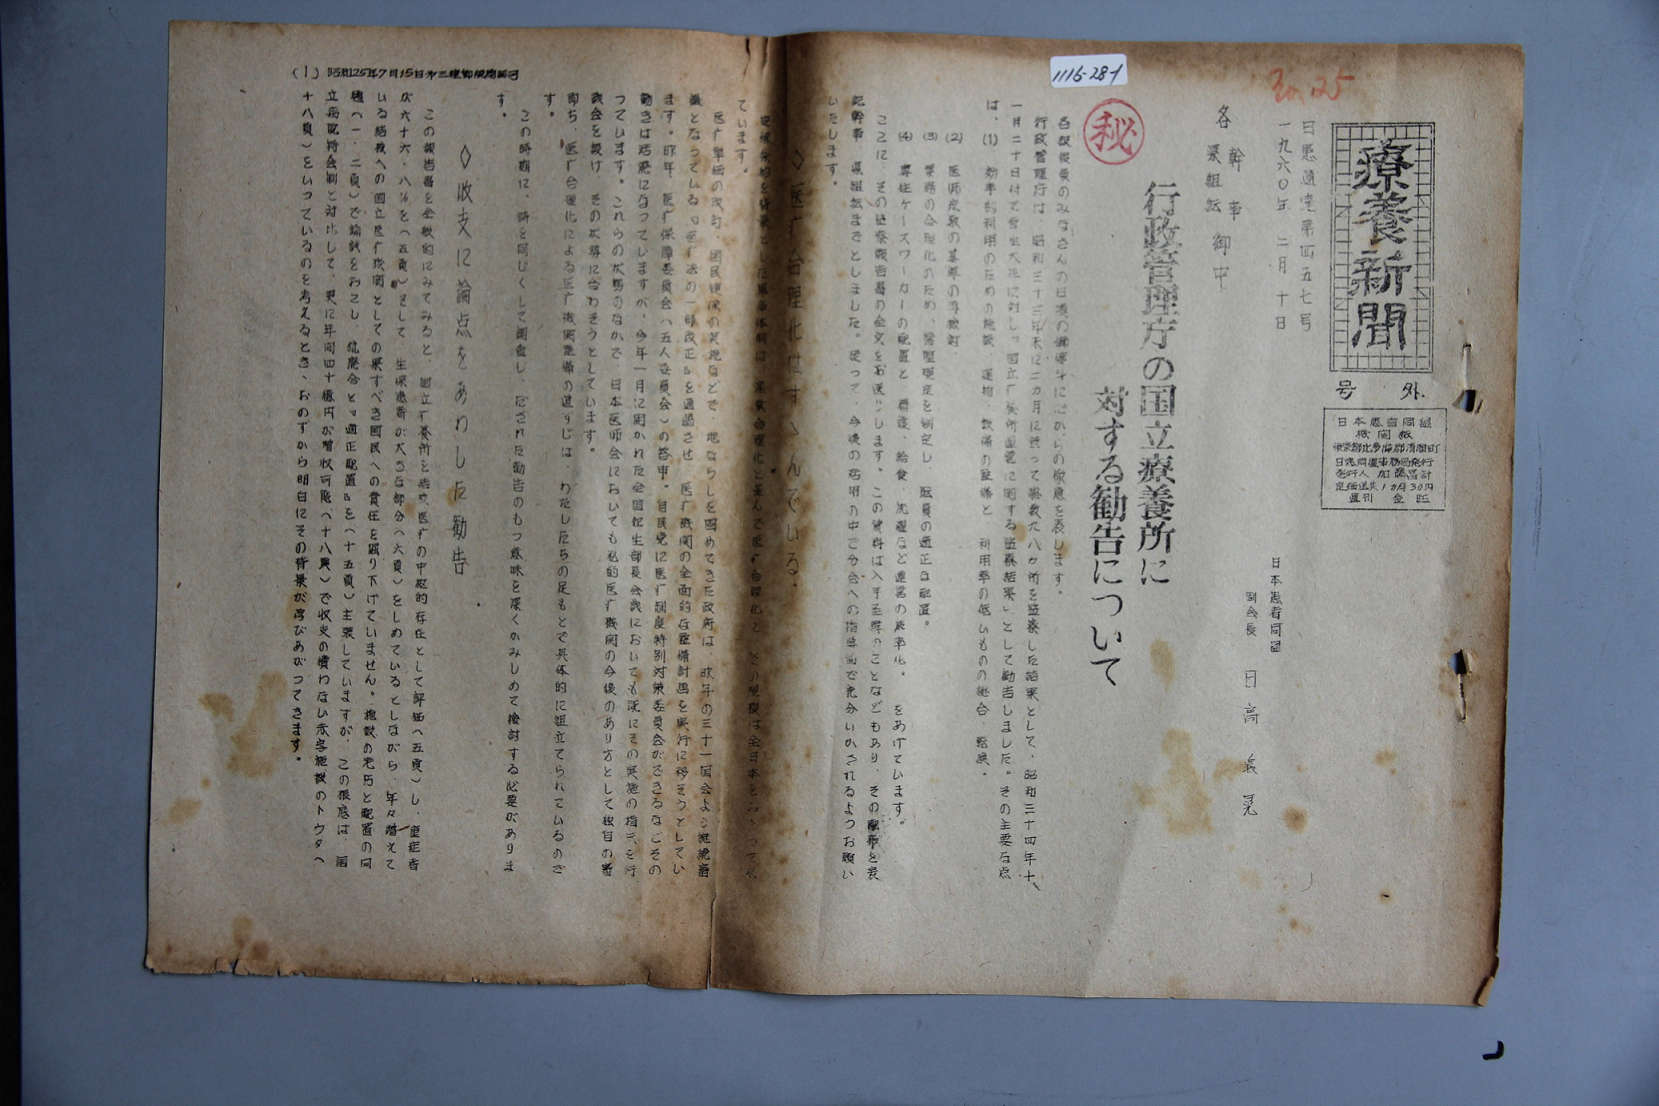 1116-28-1
3a. 25
療養新聞
号外
日本患者同盟
機関紙
日患同盟事務局発行
定価送共1カ月30円
週刊
日患通達第四五七号
一九六〇年二月十日
各 幹事
県組織 御中
日本患者同盟
副会長 日高
秘
行政管理庁の国立療養所に
対する勧告について
各級役員のみなさんの日頃の御健斗に心からの敬意を表します。
行政管理庁は、昭和三十三年末に二カ月に渡って県数九八カ所を監察した結果として、昭和三十四年十
一月二十日付で厚生大臣に対し、「国立療養所運営に関する監察結果」として勧告しました。その主要な点
は、(1) 効率的利用のための施設、建物、設備の整備と、利用率の低いものの統合、転換。
(2) 医師定数の基準の再検討
(3) 業務の合理化のため、管理規定を制定し、職員の適正な配置。
(4) 専任ケースワーカーの配置と、看護、給食、洗濯など運営の効率化。をあげています。
ここに、その監察報告書の全文をお送りします。この資料は入手至難のことなどもあり、その配布を支
部幹事、県組織までとしました。従って、今後の活用の中で分会への指導面で充分いかされるようお願い
いたします。
◇医療合理化はすゝんでいる。
ています。
医療単価の改訂、国民皆保険の実現などで、地ならしを固めてきた政府は、昨年の三十一国会より継続審
議となっている「医療法の一部改正」を通過させ、医療機関の全面的な整備計画を実行に移そうとしてい
ます。昨年、医療保障委員会(五人委員会)の答申、自民党に医療制度特別対策委員会ができるなどその
動きは活発になっていますが、今年一月に開かれた全国衛生部長会議においても既にその実施の指示を行
っています。これらの状勢のなかで、日本医師会においても私的医療機関の今後のあり方として独自の審
議会を設け、その状勢に合わそうとしています。
即ち、医療合理化による医療機関整備の道すじは、わたしたちの足もとで具体的に組立てられているので
す。
この時期に、時を同じくして調査し、だされた勧告のもつ意味を深くかみしめて検討する必要がありま
す。
◇収支に論点をあわした勧告
この報告書を全般的にみてみると、国立療養所を結核医療の中枢的存在として評価(五頁)し、重症者
が六十六・八%を(五頁)として、生保患者が大きな部分(六頁)をしめているとしながら、年々増えて
いる結核への国立医療機関としての果すべき国民への責任を掘り下げていません。施設の老朽と配置の同
種(一、二頁)で論議をおこし、統廃合と「適正配置」を(十五頁)主張していますが、この根底は、国
立病院特会制と対比して、更に年間四十億円が増収可能(十八頁)で収支の償わない赤字施設のトウタ(
十八頁)をいっているのを考えるとき、おのずから明白にその背景が浮びあがってきます。
(1) 昭和25年7月15日第三種郵便物認可